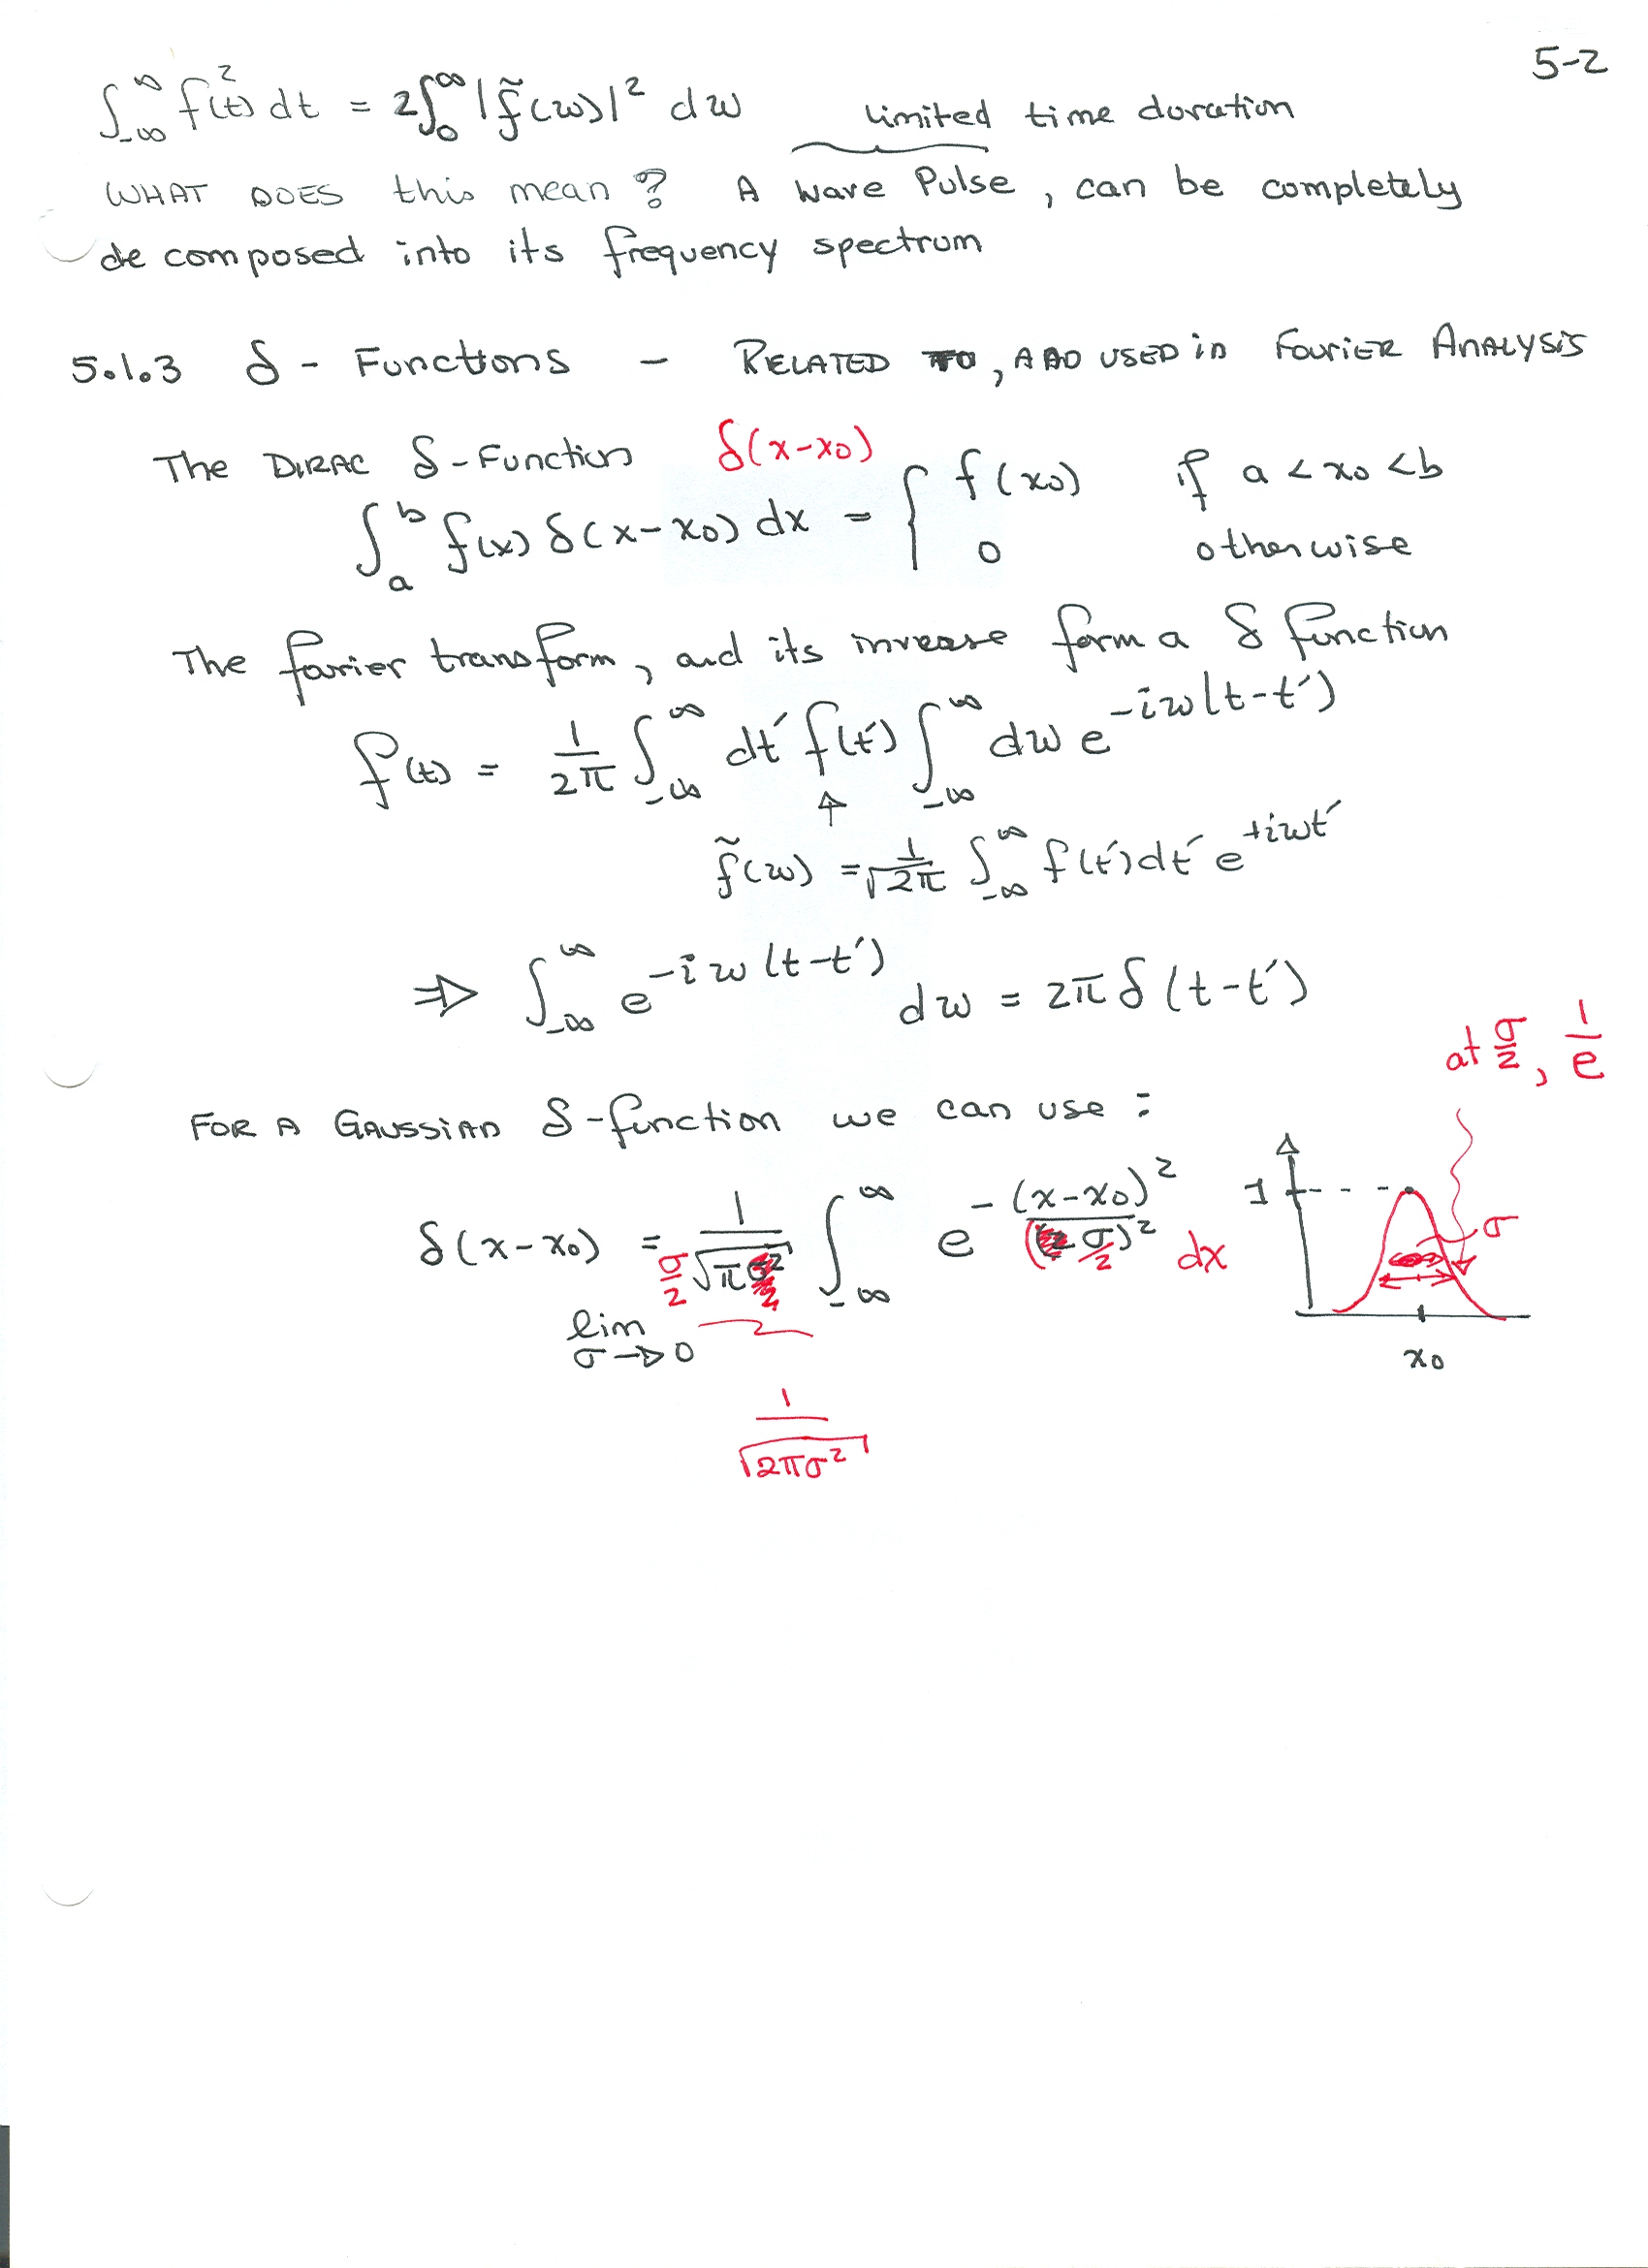 5-2
∫_{-∞}^{∞} f²(t) dt = 2∫_0^∞ |f̃(ω)|² dω
limited time duration
WHAT DOES this mean? A wave Pulse, can be completely
decomposed into its frequency spectrum
5.1.3 δ - Functions - RELATED TO, AND USED in FOURIER ANALYSIS
The DIRAC δ-Function δ(x-x₀)
∫_a^b f(x) δ(x-x₀) dx = { f(x₀) if a < x₀ < b
0 otherwise
The fourier transform, and its inverse form a δ function
f(t) = 1/2π ∫_{-∞}^{∞} dt' f(t') ∫_{-∞}^{∞} dω e^{-iω(t-t')}
↑
f̃(ω) = 1/√2π ∫_{-∞}^{∞} f(t')dt' e^{+iωt'}
⇒ ∫_{-∞}^{∞} e^{-iω(t-t')} dω = 2π δ(t-t')
at σ/2, 1/e
FOR A GAUSSIAN δ-function we can use :
δ(x-x₀) = 1/(σ/2 √π) ∫_{-∞}^{∞} e^{-(x-x₀)²/(σ/2)²} dx
lim σ→0
1/√(2πσ²)
1
σ
x₀